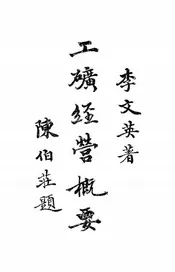 李文英著
工礦經營概要
陳伯莊題